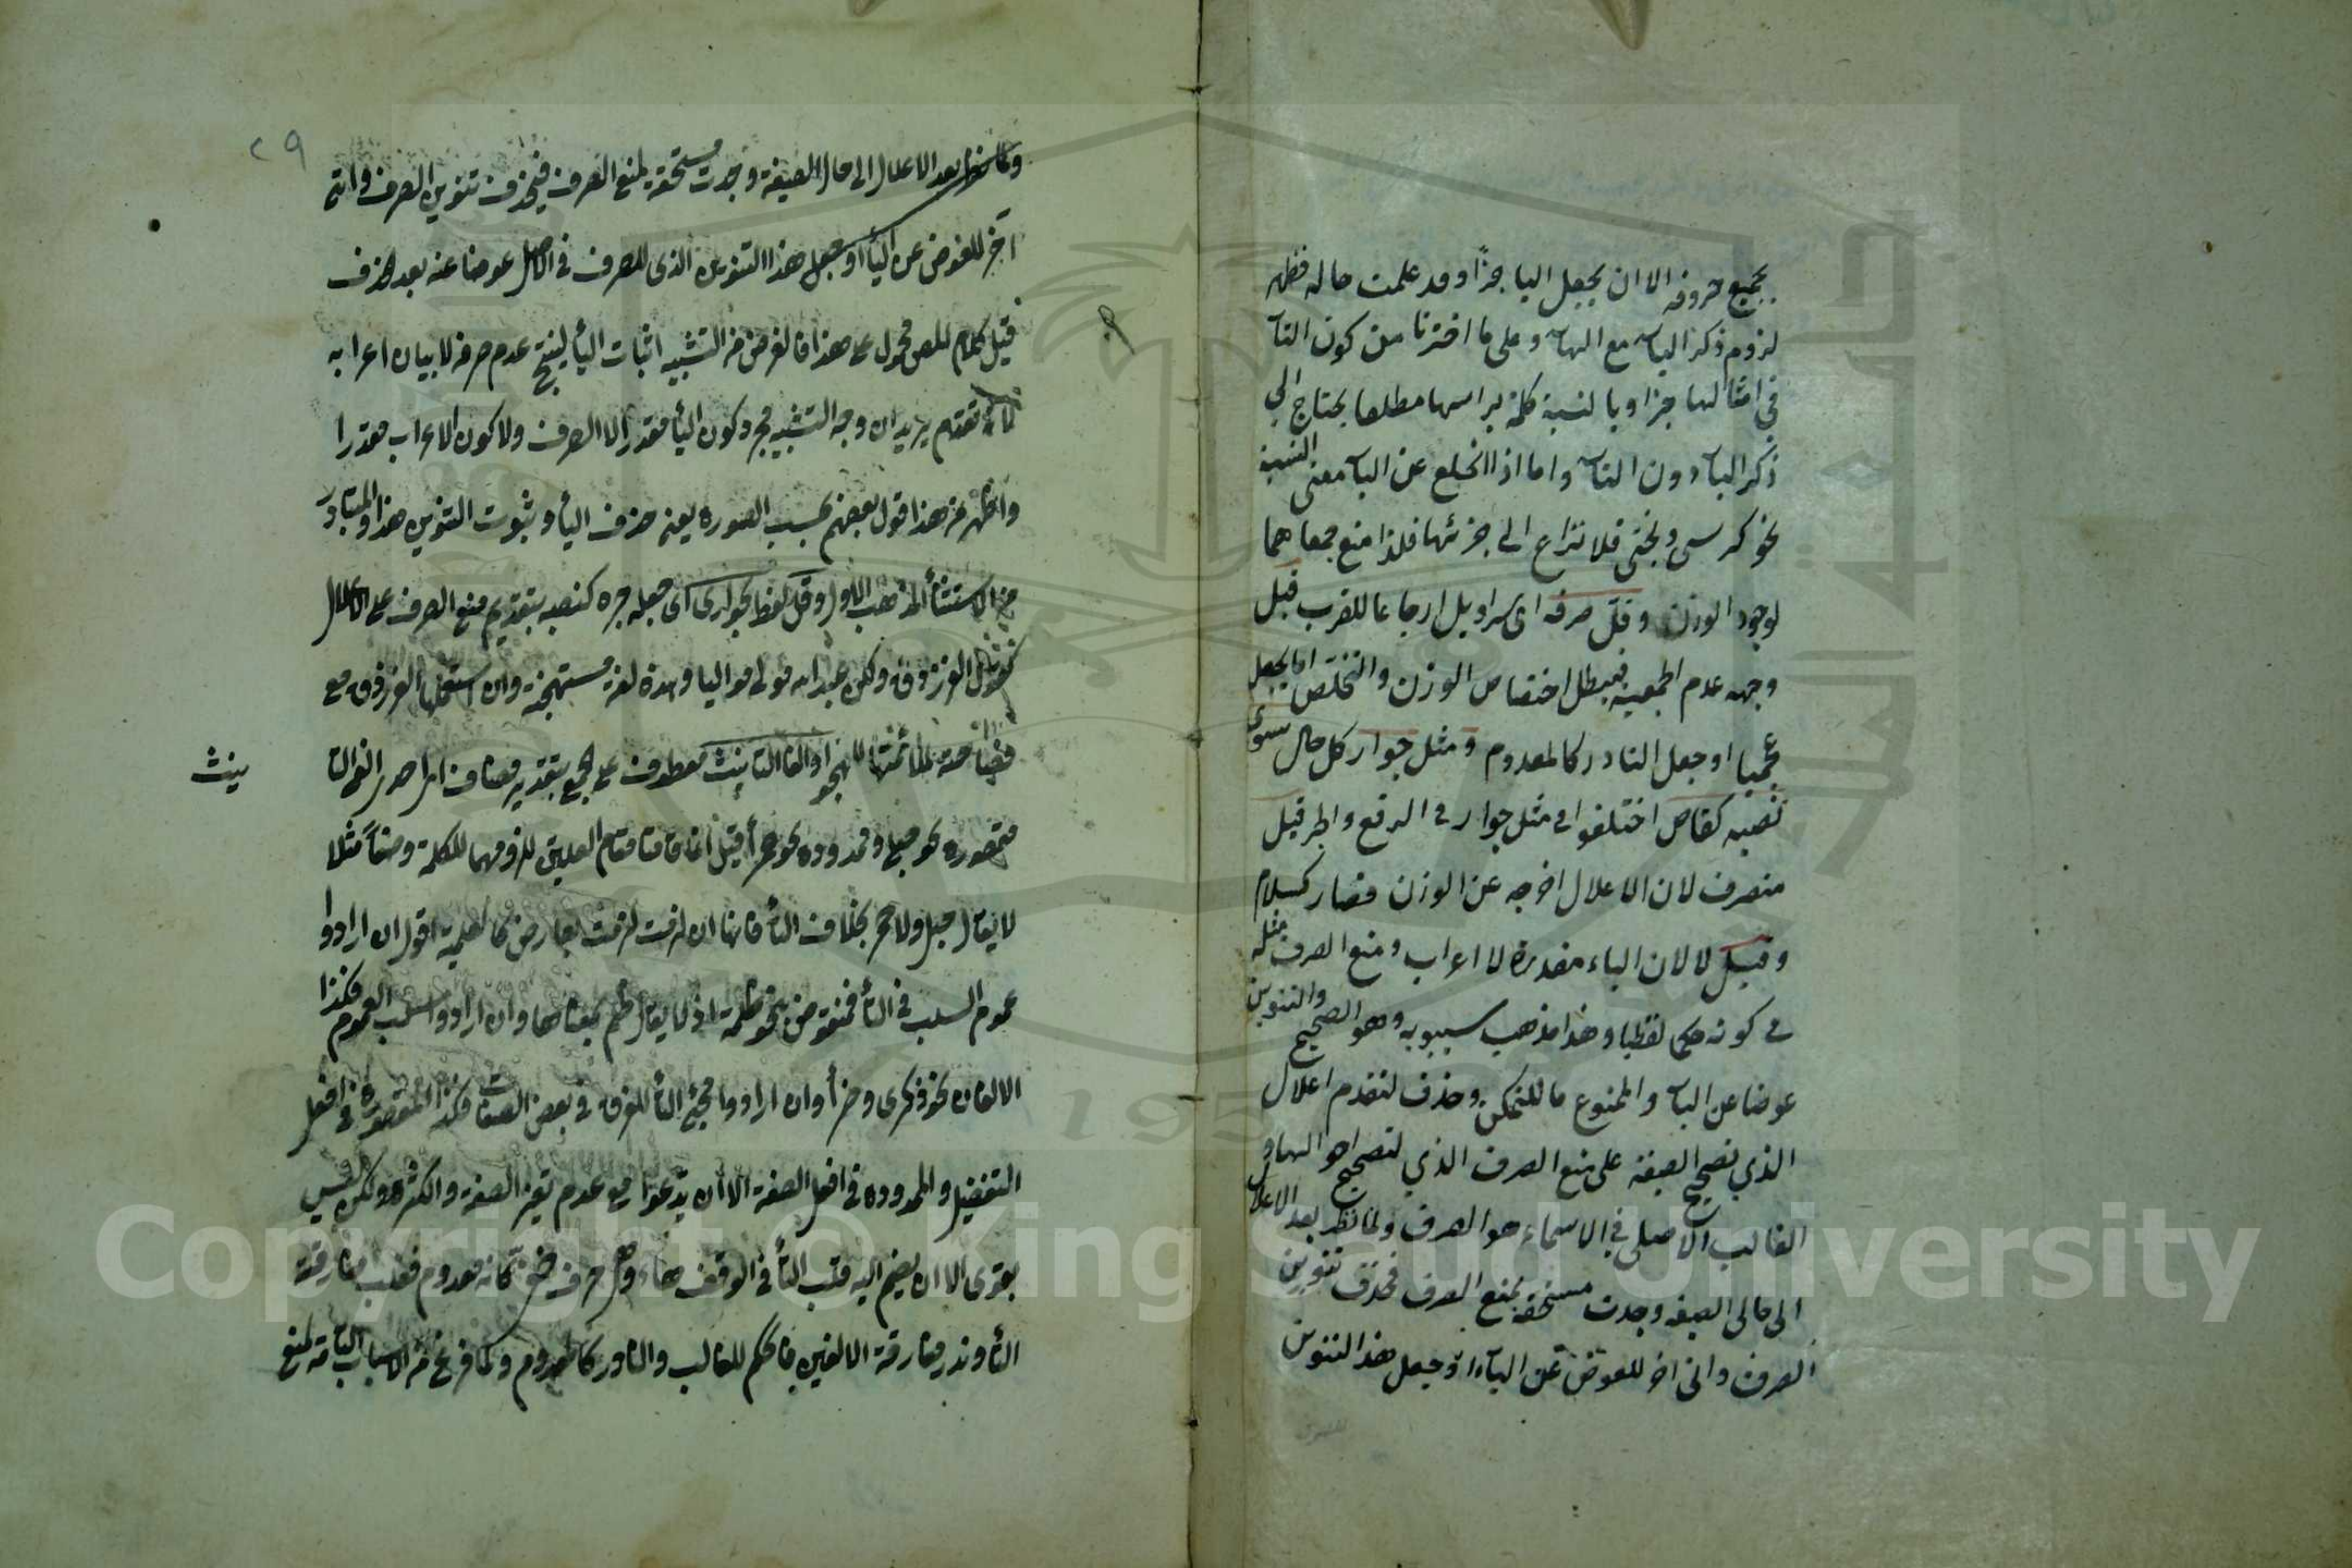 بجميع حروفه الا ان يجعل اليا جزأ وقد علمت حاله فظهر
لزوم ذكر الياء مع الهاء وعلى ما اخترنا من كون التاء
في امثالها جزا وبالنسبة كلمة براسها مطلقا يحتاج الى
ذكر الياء دون التاء واما اذا انخلع عن الياء معنى النسبة
نحو كرسى وبختى فلا نزاع الى جزئتها فلذا منع جمعاهما
لوجود الوزن وقل صرفه اى سراويل ارجاعا للقرب قيل
وجهه عدم الجمعية فيبطل اختصاص الوزن والتخلص اما بجعل
عجميا او جعل النادر كالمعدوم ومثل جوار كل حال سوى
نصبه كقاض اختلفوا في مثل جوار في الرفع والجر قيل
منصرف لان الاعلال اخرجه عن الوزن فصار كسلام
وقيل لا لان الياء مقدرة لا اعراب ومنع الصرف مثله
في كونه حكما لفظيا وهذا مذهب سيبويه وهو الصحيح والتنوين
عوضا عن الياء والممنوع ما للتمكن وحذف لتقدم اعلال
الذي تصحيح الصيغة على منع الصرف الذي لتصحيح احوالها و
الغالب الاصلي في الاسماء هو الصرف ولما نظر بعد الاعلال
الى حالى الصيغه وجدت مستحقة بمنع الصرف فحذف تنوين
الصرف واتى اخر للعوض عن الياء او جعل هذا التنوين
٢٩
بعد الاعلال الى حال الصيغة وجدت مستحقة لمنع الصرف فيحذف تنوين الصرف واتى
آخر للعوض عن الياء او جعل هذا التنوين الذى للصرف في الاصل عوضا عنه بعد الحذف
قيل كلام المص محمول على هذا فالغرض من التشبيه اثبات الياء لينتج عدم صرفه لا بيان اعرابه
لما تقدم يريد ان وجه التشبيه مجرد كون الياء مقدرا لا الصرف ولا كون الاعراب مقدرا
واظهر من هذا قول بعضهم بحسب الصورة يعنى حذف الياء وثبوت التنوين هذا والمتبادر
من الاستثناء المذهب الاول وقل لفظ بجوارى اى جعله جره كنصبه بتقديم منع الصرف على الاعلال
كقول الفرزدق ولكن عبد الله مولى مواليا وهذه لغة مستهجنة وان استعملها الفرزدق مع
او الفا التانيث معطوف على الجمع بتقدير مضاف
ينث
مقصورة نحو حبلى وممدودة نحو حمراء قيل انما قامتا مقام العلتين للزومهما للكلمة وضعا مثلا
لا يقال حبل ولا حمر بخلاف التاء فانها ان لزمت لزمت بعارض كالعلمية اقول ان ارادوا
عموم السلب في التاء فمنقوض بنحو ظلمة اذ لا يقال ظلم بمعناها وان ارادوا سلب العموم فكذا
الالفان نحو ذكرى وان ارادوا مجئ التاء للفرق في بعض الصفات فكذا المقصورة في افعل
التفضيل والممدودة في افعل الصفة الا ان يدعوا مع عدم تغير الصفة والكثرة ولكن ليس
بقوى الا ان يضم اليه قلب التاء في الوقف هاء وهى حرف خفى كانه معدوم فغلب مفارقة
التاء وندر مفارقة الالفين فالحكم للغالب والنادر كالمعدوم ولما فرغ من الاسباب التامة لمنع